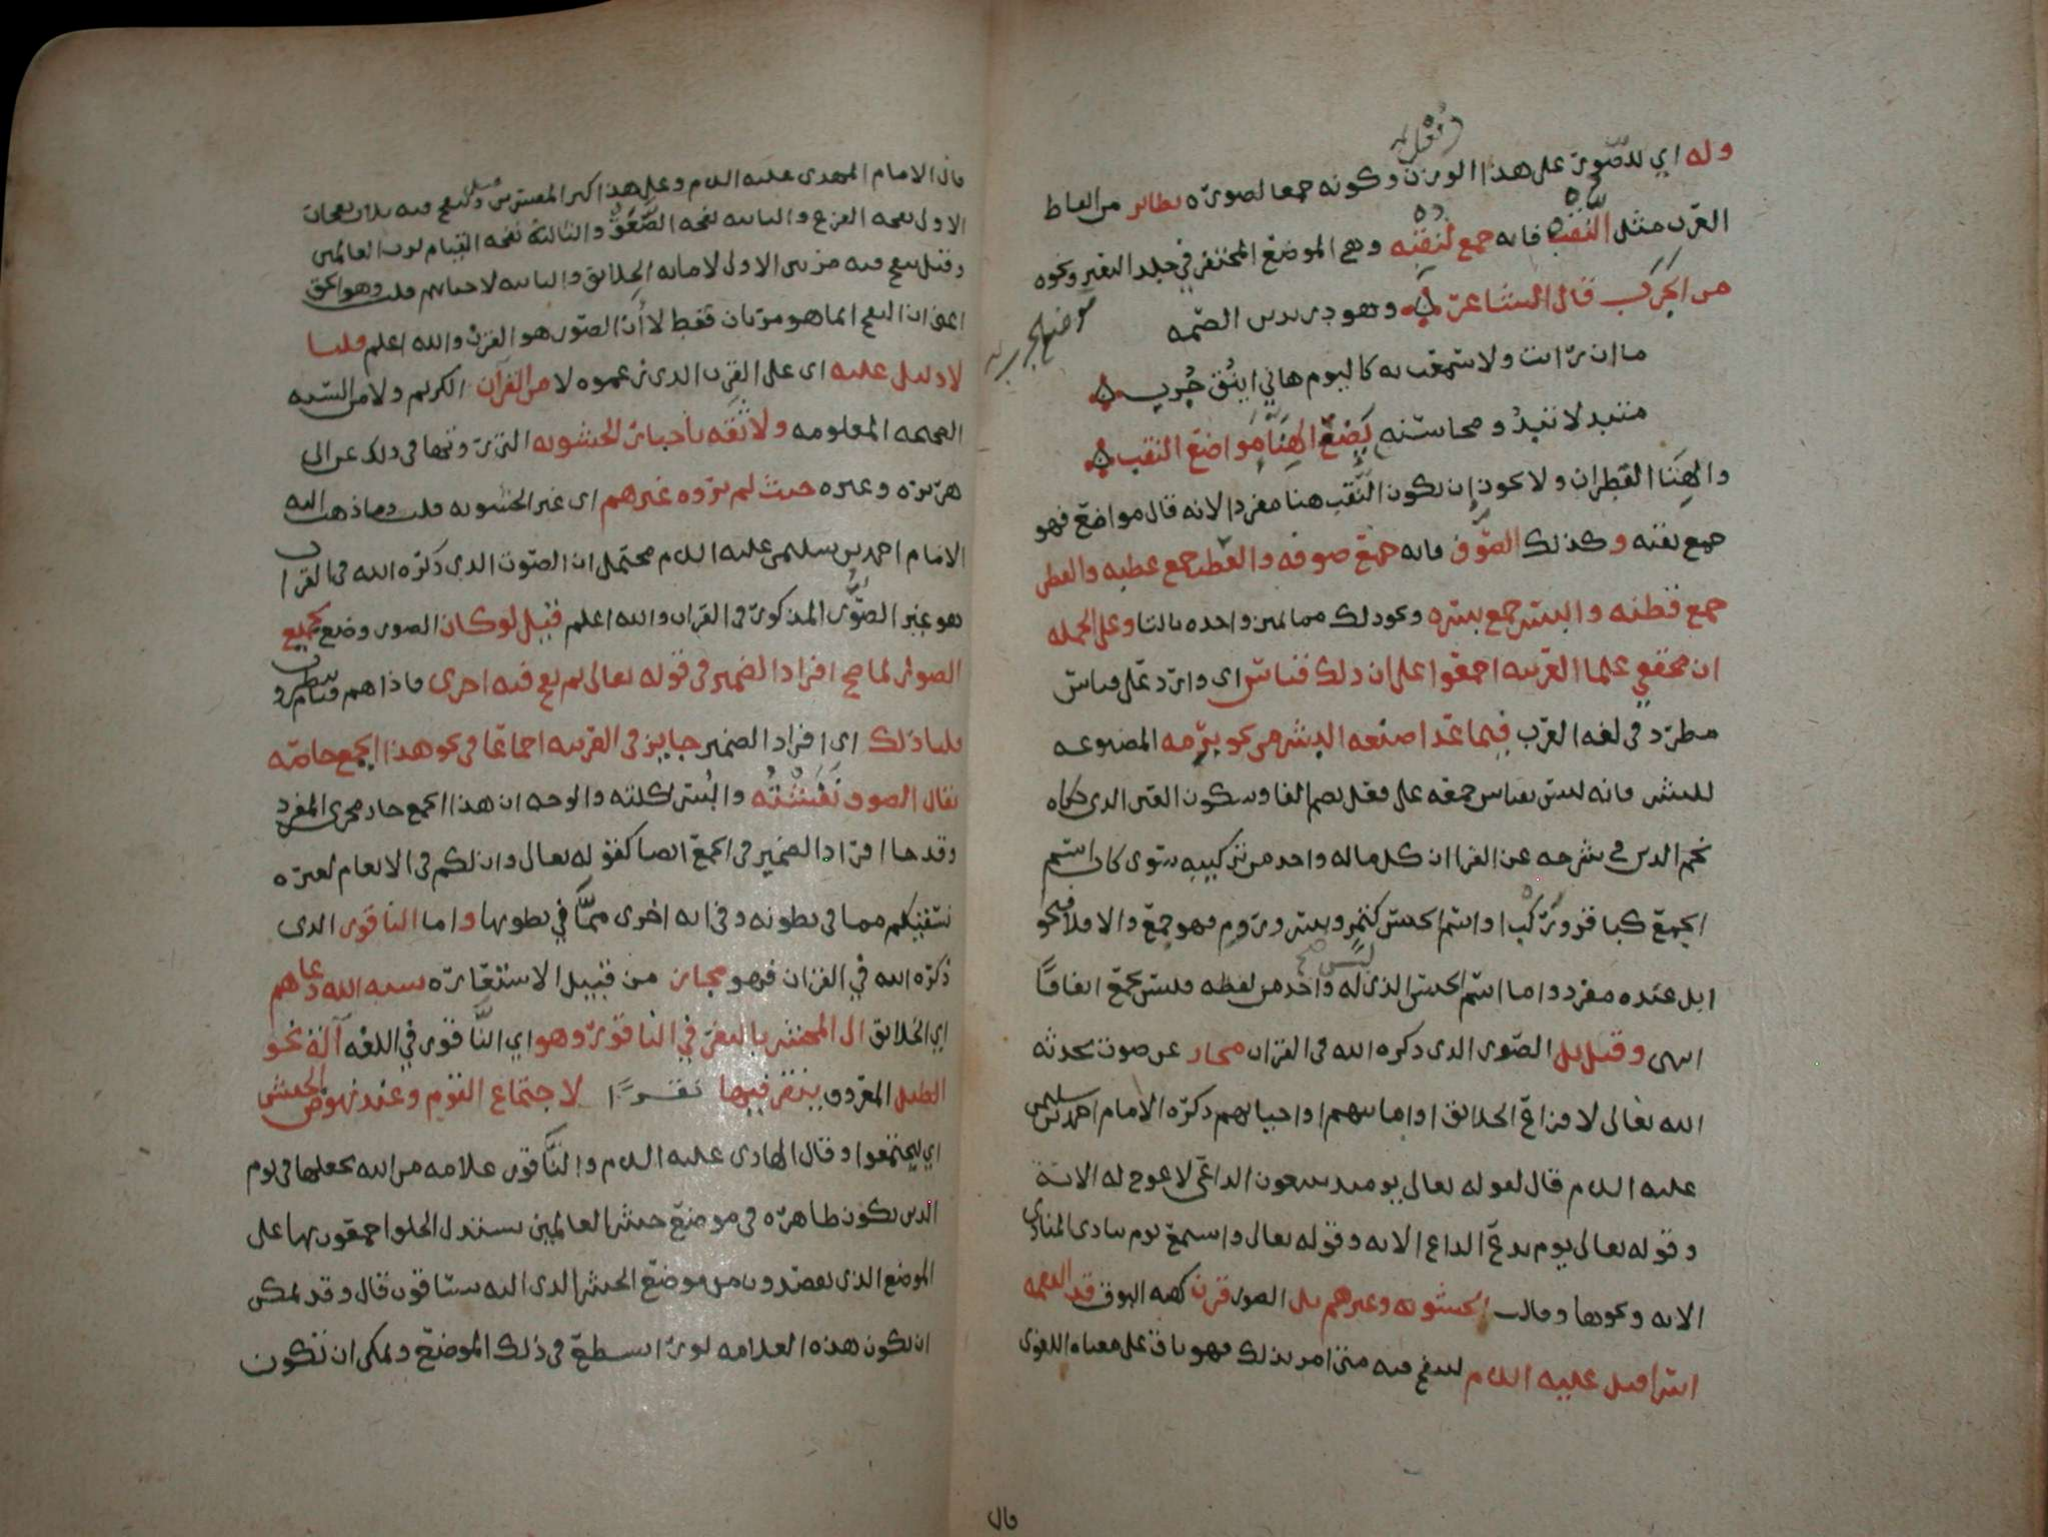 وله اي للصُّوَر على هذا الوزن وكونه جمعا لصورة نظائر من الفاظ
العرب مثل النُّقْب فانه جمع لنُقْبه وهي الموضع المتنفر في جلد البعير ونحوه
من الجَرَب قال الشاعر وهو دريد بن الصمه
ما ان رات ولا سمعت به كاليوم هاني اينُق جُرب
متبدلا تبدُ ومحاسنه يَضَعُ الهِنَا مَواضع النقب
والهِنَا القطران ولا يجوز ان يكون النُّقب هنا مفردا لانه قال مواضع فهو
جمع نقبه وكذلك الصُّوف فانه جمع صوفه والعُطب جمع عطبه والقطن
جمع قطنه والبسر جمع بسره ونحو ذلك مما تميز واحده بالتا وعلى الجمله
ان محققي علما العربيه اجمعوا على ان ذلك قياس اي وارد على قياس
مطرد في لغه العرب فيما عدا صنعه البشر من نحو برمه المصنوعه
للبشر فانه ليس بقياس جمعه على فعل بضم الفا وسكون العين الذي حكاه
نجم الدين في شرحه عن الفرا ان كل ما له واحد من تركيبه سوى كان اسم
الجمع كباقر وركب او اسم الجنس كتمر وبسر وروم فهو جمع والا فلا فنحو
ابل عنده مفرد واما اسم الجنس الذي ليس له واحد من لفظه فليس بجمع اتفاقا
انتهى وقيل بل الصور الذي ذكره الله في القران مجاز عن صوت يحدثه
الله تعالى لافزاع الخلائق او اماتتهم او احيائهم ذكره الامام احمد بن سليمن
عليه السلام قال لقوله تعالى يومئذ يتبعون الداعي لا عوج له الاية
وقوله تعالى يوم يدع الداع الايه وقوله تعالى واستمع يوم ينادي المنادي
الايه ونحوها وقالت الحشويه وغيرهم بل الصور قرن كهيه البوق قد التقمه
اسرافيل عليه السلام لينفخ فيه متى امر بذلك فهو باق على معناه اللغوي
قال
قال الامام المهدي عليه السلام وعلى هذا اكثر المفسرين قيل وينفخ فيه ثلاث نفخات
الاولى نفخه الفزع والثانيه نفخه الصَّعَق والثالثة نفخه القيام لرب العالمين
وقيل ينفخ فيه مرتين الاولى لاماته الخلائق والثانيه لاحيائهم قلت وهو الحق
اعني ان النفخ انما هو مرتان فقط لا أن الصور هو القرن والله اعلم قلنا
لا دليل عليه اي على القرن الذي زعموه لا من القرآن الكريم ولا من السنه
الصحيحه المعلومه ولا ثِقَه باخبار الحشويه التي رووها في ذلك عن ابي
هريره وغيره حيث لم يروه غيرهم اي غير الحشويه قلت وما ذهب اليه
الامام احمد بن سليمن عليه السلام محتمل ان الصوت الذي ذكره الله في القران
هو غير الصُّوَر المذكور في القران والله اعلم قيل لو كان الصور وضع لجميع
الصور لما صح افراد الضمير في قوله تعالى ثم نفخ فيه اخرى فاذا هم قيام ينظرون
قلنا ذلك اي افراد الضمير جايز في العربيه اجماعا في نحو هذا الجمع خاصه
يقال الصوف نَفَشْتُه والبُسر اكلته والوجه ان هذا الجمع جار مجرى المفرد
وقد جا افراد الضمير في الجمع ايضا كقوله تعالى وان لكم في الانعام لعبره
نسقيكم مما في بطونه وفي ايه اخرى ممَّا في بطونها واما الناقور الذي
ذكره الله في القران فهو مجاز من قبيل الاستعاره شبه الله دعاهم
اي الخلائق الى المحشر بالنقر في الناقور وهو اي النَّاقور في اللغه آلة نحو
الطبل المعروف ينقر فيها نقرًا لاجتماع القوم وعند نهوض الجيش
اي ليجتمعوا وقال الهادي عليه السلام والنَّاقور علامه من الله يجعلها في يوم
الدين يكون ظاهره في موضع حشر العالمين يستدل الخلق اجمعون بها على
الموضع الذي يقصدون من موضع الحشر الذي اليه يساقون قال وقد يمكن
ان يكون هذه العلامه نورًا يسطع في ذلك الموضع ويمكن ان تكون